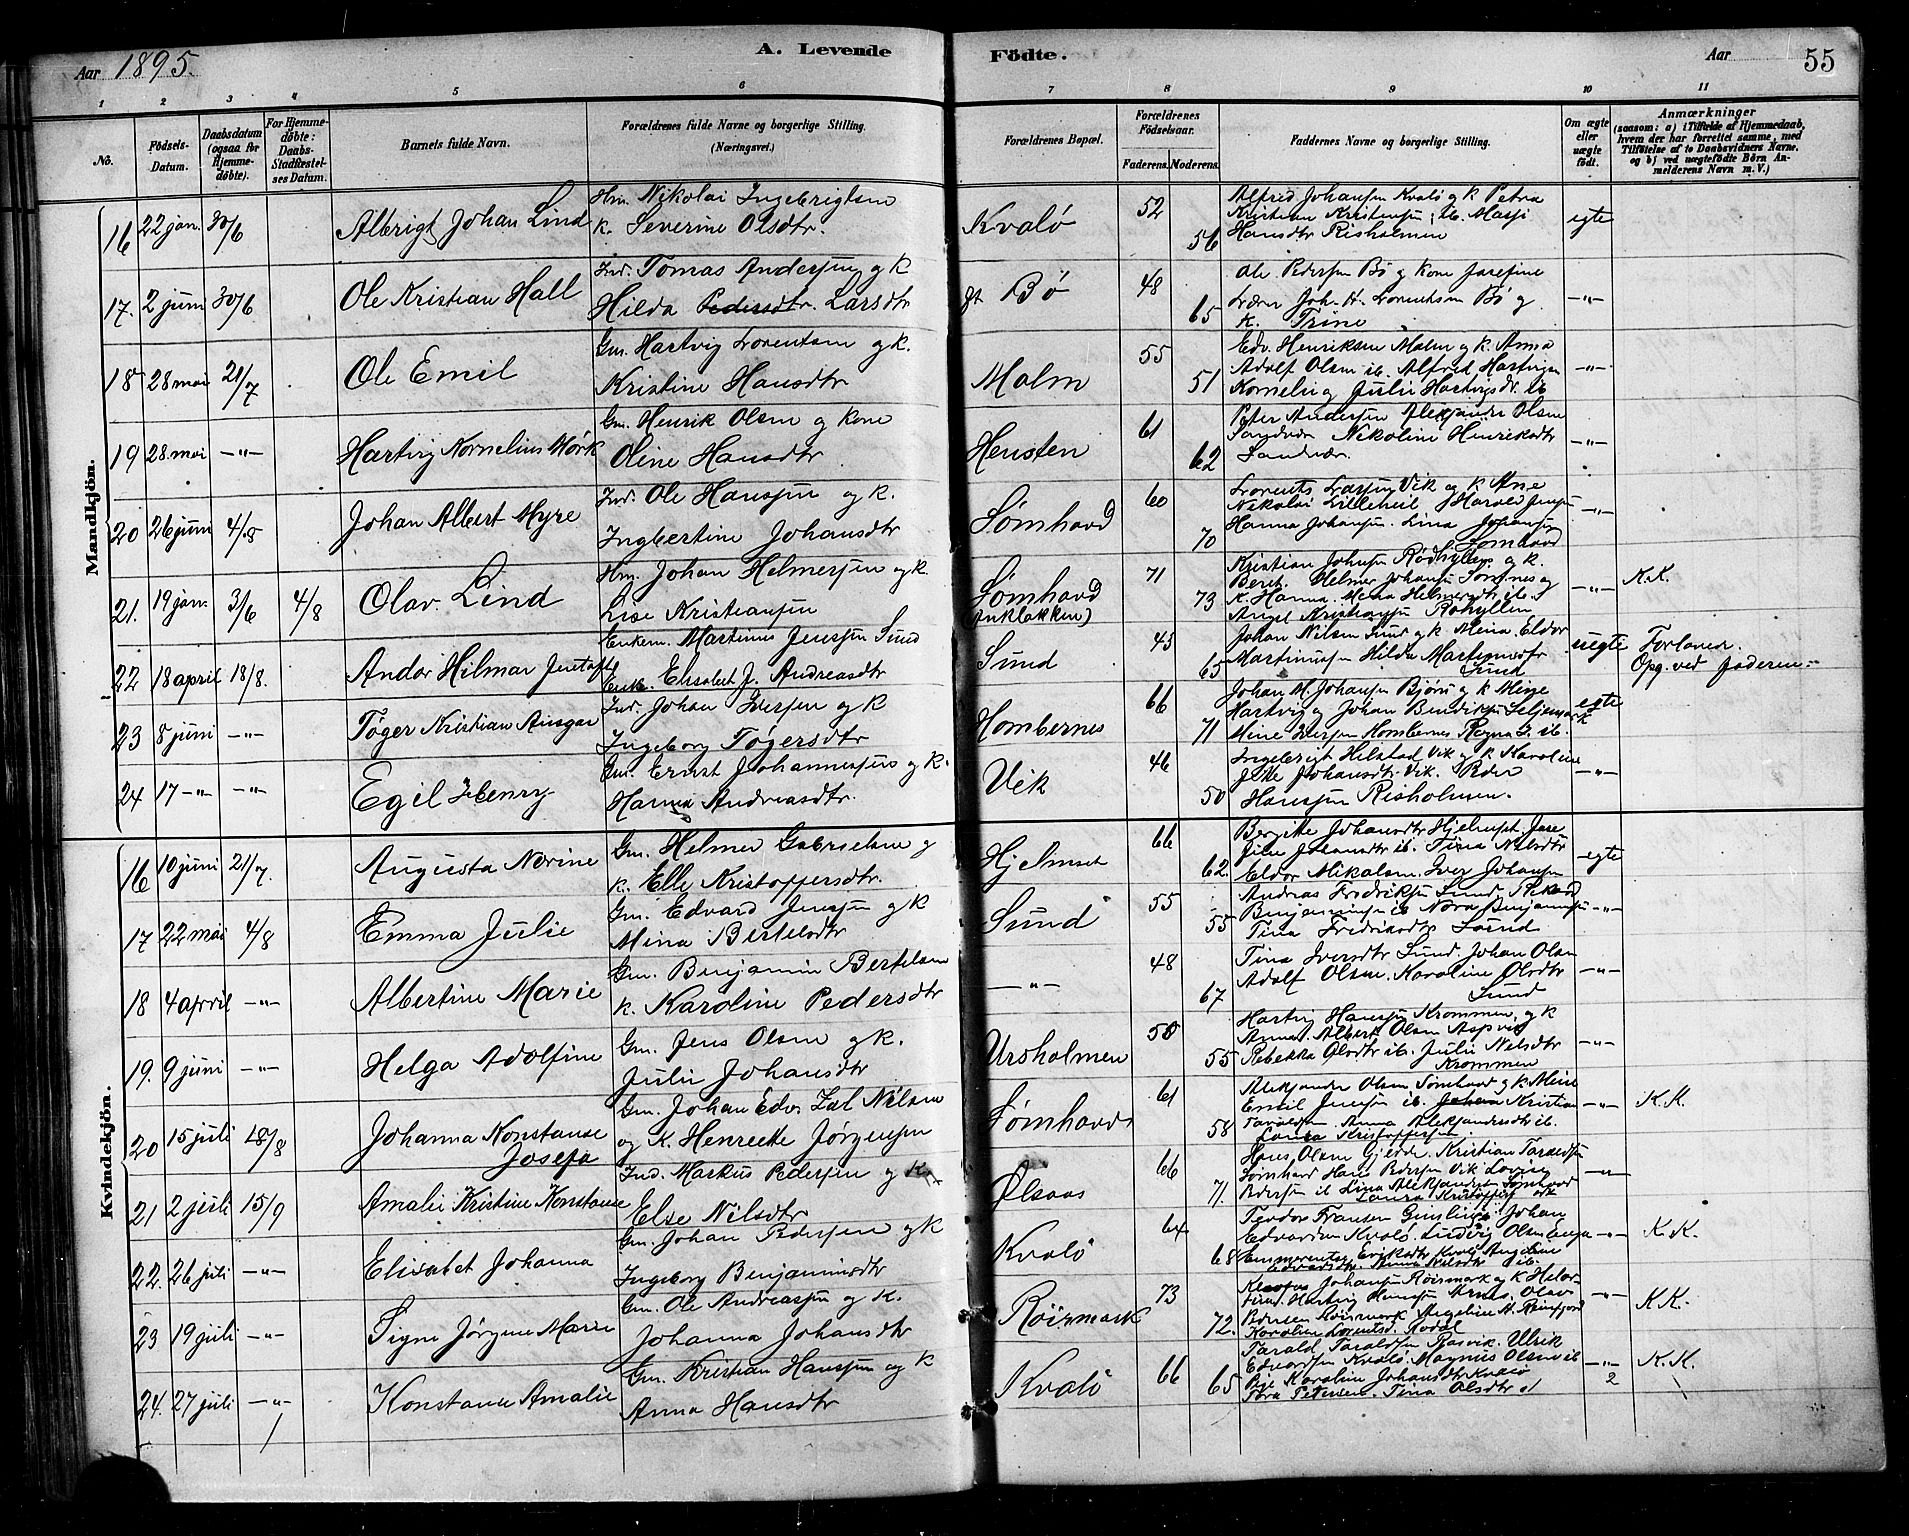 Aar 1895.
A. Levende Födte.
Aar
55
1 2 3 4 5 6 7 8 9 10 11
No.
Födsels-Datum.
Daabsdatum (ogsaa for Hjemmedöbte).
For Hjemmedöbte: Daabs-Stadfæstelses Datum.
Barnets fulde Navn.
Forældrenes fulde Navne og borgerlige Stilling. (Næringsvei.)
Forældrenes Bopæl.
Forældrenes Födselsaar.
Faderens. Moderens.
Faddernes Navne og borgerlige Stilling.
Om ægte eller uægte födt.
Anmærkninger
(saasom: a) i Tilfælde af Hjemmedaab, hvem der har forrettet samme, med Tilföielse af to Daabsvidners Navne. og b) ved uægtefödte Börn Anmelderens Navn m. V.)
Mandkjön.
16 22 jan. 30/6 Albrigt Johan Lind Hm. Nikolai Ingebrigtsen k. Severine Olsdtr. Kvalø 52 56 Alfred Johansen Kvalø og k Petra Kristian Kristensen ib. Masji Hansdtr Risholmen egte
17. 2 juni 30/6 Ole Kristian Hall Ind. Tomas Andersen og k Hilda Pedersdtr. Larsdtr Bø 48 65 Ole Pedersen Bø og Kone Josefine Lærer Joh. H. Lorentsen Bø og k. Trine —"—
18 28 mai 21/7 Ole Emil Gm. Hartvig Lorentsen og k. Kristine Hansdtr Malm 55 51 Edv. Henriksen Malm og k. Anna Adolf Olsen ib. Alfred Hartvigsen Kornelius Julie Hartvigsdtr. ib —"—
19 28 mai —"— Hartvig Kornelius Mørk Gm. Henrik Olsen og Kone Oline Hansdtr Hensten 61 62 Peter Andersen Aleksander Olsen Sandvær Nikoline Henriksdtr Sandvær. —"—
20 26 juni 4/8 Johan Albert Myre Ind. Ole Hansen og k. Ingbertine Johansdtr Sømhovd 60 70 Lorents Larsen Vik og k Ane Nikolai Lilleheil Harald Jensen Hanna Johansen. Lina Johansen Sømhovd —"—
21. 19 jan. 3/6 4/8 Olav Lind Hm. Johan Helmersen og k. Lise Kristiansen Sømhovd 71 73 Kristian Johnsen og k. Beret. Helmer Johansen og k. Hanna. Mena Helmersdtr ib. Angel Kristiansen —"— K.K.
22 18 april 18/8. Andor Hilmar Enkem. Martinus Jensen Sund Enke. Elisabet J. Andreasdtr Sund 45 65 Johan Nilsen Sund og k Mina Eldor Martinussen Hilda Martinusdtr Sund uegte Forlovede. Opg. ved faderen
23 8 juni —"— Tøger Kristian Ansgar Ind. Johan Iversen og k Ingeborg Tøgersdtr Hombernes 66 71 Johan M. Johansen Bjøru og k Mine Hartvig og Johan Bendiksen Mine Iversen Hombernes ib. egte
24 17 —"— —"— Egil Henry Gm. Ernst Johannesen og k. Hanna Andreasdtr. Vik 46 50 Ingebrigt Helstad Vik og k Karoline Jette Johansdtr Vik. Peder Hansen Risholmen. —"—
Kvindekjön.
16 10 juni 21/7. Augusta Norine Gm. Helmer Gabrielsen og k. Elle Kristoffersdtr. Hjelmset 66 62. Bergitte Johansdtr Johansdtr ib. Tina Nilsdtr Eldor Mikalsen. Iver Johansen egte
17 22 mai 4/8 Emma Julie Gm. Edvard Jensen og k Mina Bertelsdtr Sund 55 55 Andreas Fredriksen Sund Rikard Benjaminsen ib Nora Benjaminsen Tina Fredriksdtr Sund —"—
18 4 april —"— Albertine Marie Gm. Benjamin Bertelsen k. Karoline Pedersdtr —"— 48 67 Tina Iversdtr Sund. Johan Olsen Adolf Olsen. Karoline Olsdtr Sund —"—
19. 9 juni —"— Helga Adolfine Gm. Jens Olsen og k. Julie Johansdtr Ursholmen 50 55 Hartvig Hansen Krommen og k Anna. Albert Olsen Aspvig Rebekka Olsdtr ib. Julie Nilsdtr Krommen —"—
20 15 juli 18/8 Johanna Konstanse Josefa Gm. Johan Edv. Nilsen og k. Henrette Jørgensen Sømhovd 61 58 Aleksander Olsen Sømhovd og k Mine Emil Jensen ib. Johan Kristian Taraldsen Anna Aleksandersdtr ib. Laura Kristoffersen. —"— K.K.
21 2 juli 15/9 Amalie Kristine Konstanse Ind. Markus Pedersen og k Else Nilsdtr Ølsaas 66 71 Hans Olsen Gjedde. Kristian Taraldsen Sømhovd Hans Pedersen Vik Lovise Pedersen ib Lina Aleksandersdtr Sømhovd Laura Kristoffersdtr —"—
22. 26 juli —"— Elisabet Johanna Gm. Johan Pedersen og k Ingeborg Benjaminsdtr Kvalø 64 68 Teodor Fransen Johan Edvardsen Kvalø. Ludvig Olsen Emmerentse Eriksdtr Kvalø Angeline Edvardsdtr. Nilsdtr ib. —"— K.K.
23 19 juli —"— Signe Jørgine Marie Gm. Ole Andreassen og k. Johanna Johansdtr Røirmark 73 72. Johansen Røirmark og k Hartvig Hansen Olav Pedersen Røirmark Angeline H. Karoline Lorentsd. —"— K.K.
24. 27 juli —"— Konstanse Amalie Gm. Kristian Hansen og k Anna Hansdtr Kvalø 66 65 Tarald Taraldsen Rasvik. Ulrik Edvardsen Kvalø. Magnus Olsen ib Karoline Johansdtr Kvalø Tora Petersen. Tina Olsdtr —"— 2 K.K.
1